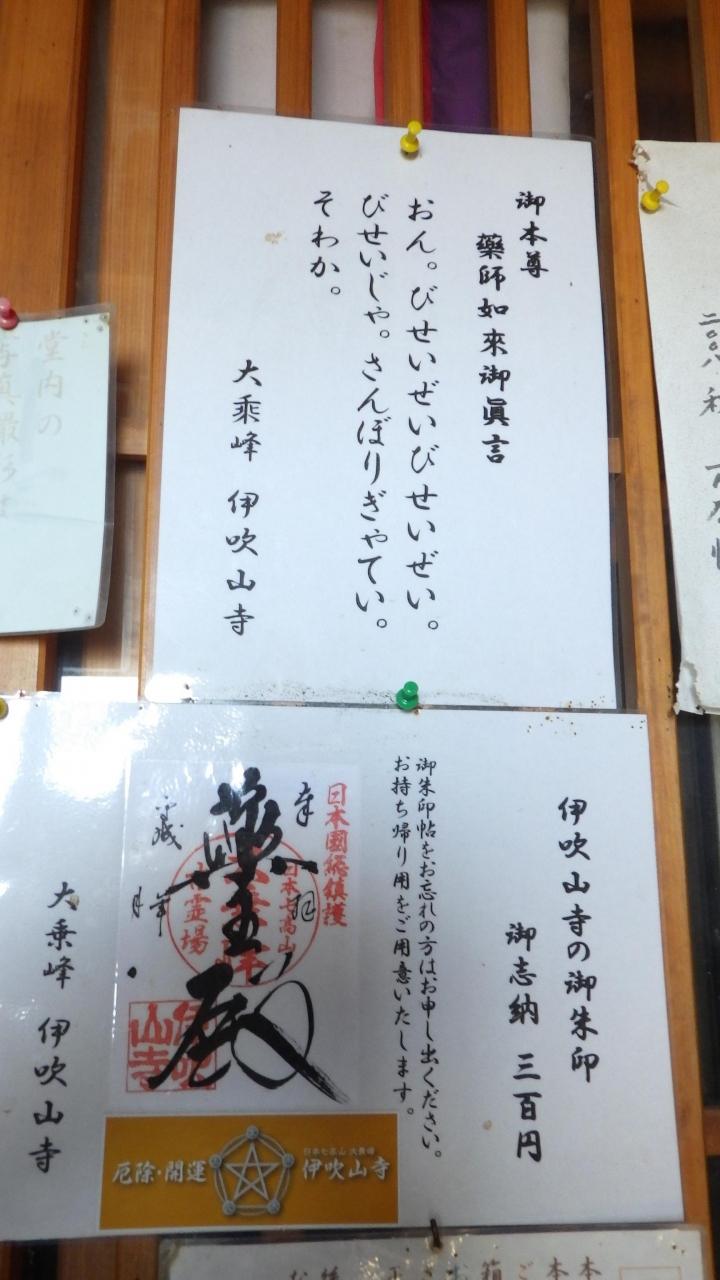 御本尊
藥師如來御眞言
おん。びせいぜいびせいぜい。
びせいじゃ。さんぼりぎゃてい。
そわか。
大乘峰 伊吹山寺
堂内の
二〇〇八
伊吹山寺の御朱印
御志納 三百円
御朱印帖をお忘れの方はお申し出ください。
お持ち帰り用をご用意いたします。
日本國総鎮護
日本七高山
霊場
伊吹
山寺
大乗峰 伊吹山寺
厄除・開運
日本七高山 大乗峰
伊吹山寺